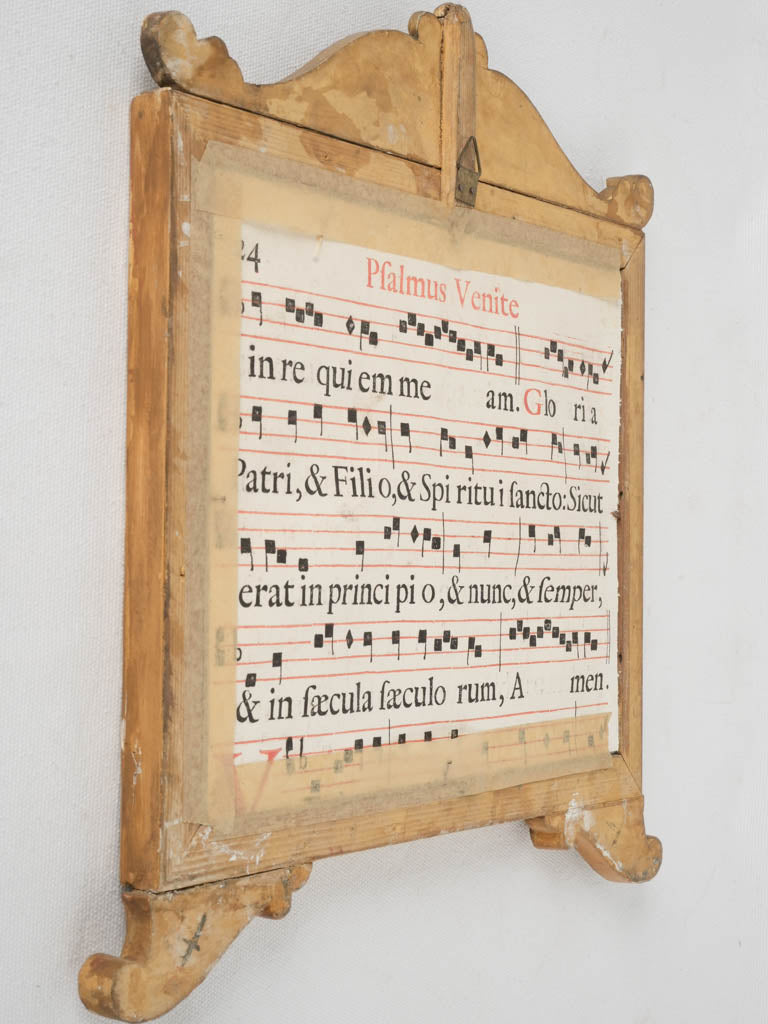 24
Pſalmus Venite
in re qui em me am. Glo ri a
Patri, & Fili o, & Spi ritu i ſancto: Sicut
erat in princi pi o, & nunc, & ſemper,
& in ſæcula ſæculo rum, A men.
V